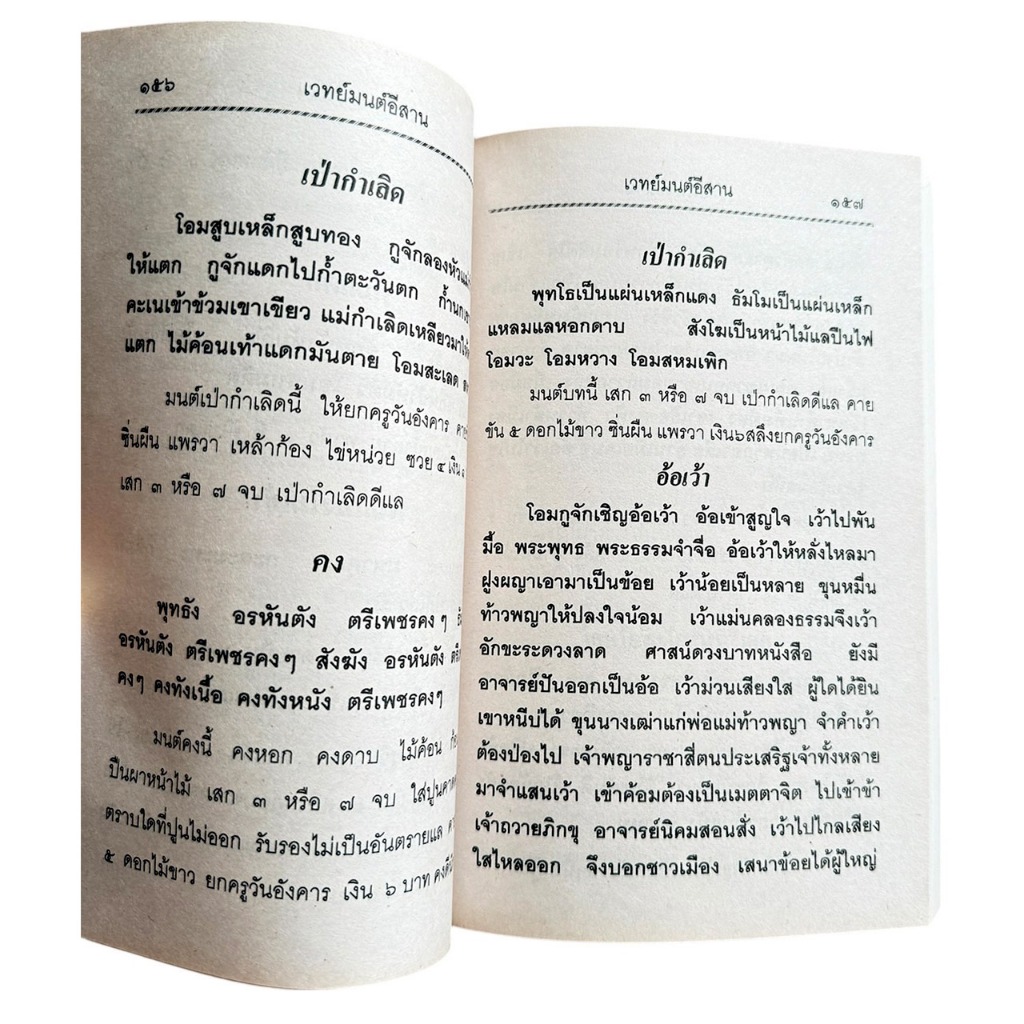 ๑๕๖ เวทย์มนต์อีสาน
เป่ากำเลิด
โอมสูบเหล็กสูบทอง กูจักลองหัวแม่
ให้แตก กูจักแดกไปก้ำตะวันตก ก้ำ
คะเนเข้าข้วมเขาเขียว แม่กำเลิดเหลียวมาให้
แตก ไม้ค้อนเท้าแดกมันตาย โอมสะเลด
มนต์เป่ากำเลิดนี้ ให้ยกครูวันอังคาร คาย
ซิ่นผืน แพรวา เหล้าก้อง ไข่หน่วย ซวย ๔ เงิน
เสก ๓ หรือ ๗ จบ เป่ากำเลิดดีแล
คง
พุทธัง อรหันตัง ตรีเพชรคงๆ
อรหันตัง ตรีเพชรคงๆ สังฆัง อรหันตัง
คงๆ คงทังเนื้อ คงทังหนัง ตรีเพชรคงๆ
มนต์คงนี้ คงหอก คงดาบ ไม้ค้อน
ปืนผาหน้าไม้ เสก ๓ หรือ ๗ จบ ใส่ปูน
ตราบใดที่ปูนไม่ออก รับรองไม่เป็นอันตรายแล
๕ ดอกไม้ขาว ยกครูวันอังคาร เงิน ๖ บาท
เวทย์มนต์อีสาน ๑๕๗
เป่ากำเลิด
พุทโธเป็นแผ่นเหล็กแดง ธัมโมเป็นแผ่นเหล็ก
แหลมแลหอกดาบ สังโฆเป็นหน้าไม้แลปืนไฟ
โอมวะ โอมหวาง โอมสหมเพิก
มนต์บทนี้ เสก ๓ หรือ ๗ จบ เป่ากำเลิดดีแล คาย
ขัน ๕ ดอกไม้ขาว ซิ่นผืน แพรวา เงิน๖สลึงยกครูวันอังคาร
อ้อเว้า
โอมกูจักเชิญอ้อเว้า อ้อเข้าสูญใจ เว้าไปพัน
มื้อ พระพุทธ พระธรรมจำจื่อ อ้อเว้าให้หลั่งไหลมา
ฝูงผญาเอามาเป็นข้อย เว้าน้อยเป็นหลาย ขุนหมื่น
ท้าวพญาให้ปลงใจน้อม เว้าแม่นคลองธรรมจึงเว้า
อักขะระดวงลาด ศาสน์ดวงบาทหนังสือ ยังมี
อาจารย์ปันออกเป็นอ้อ เว้าม่วนเสียงใส ผู้ใดได้ยิน
เขาหนีบ่ได้ ขุนนางเฒ่าแก่พ่อแม่ท้าวพญา จำคำเว้า
ต้องป่องไป เจ้าพญาราชาสี่ตนประเสริฐเจ้าทั้งหลาย
มาจำแสนเว้า เข้าค้อมต้องเป็นเมตตาจิต ไปเข้าข้า
เจ้าถวายภิกขุ อาจารย์นิคมสอนสั่ง เว้าไปไกลเสียง
ใสไหลออก จึงบอกชาวเมือง เสนาข้อยได้ผู้ใหญ่